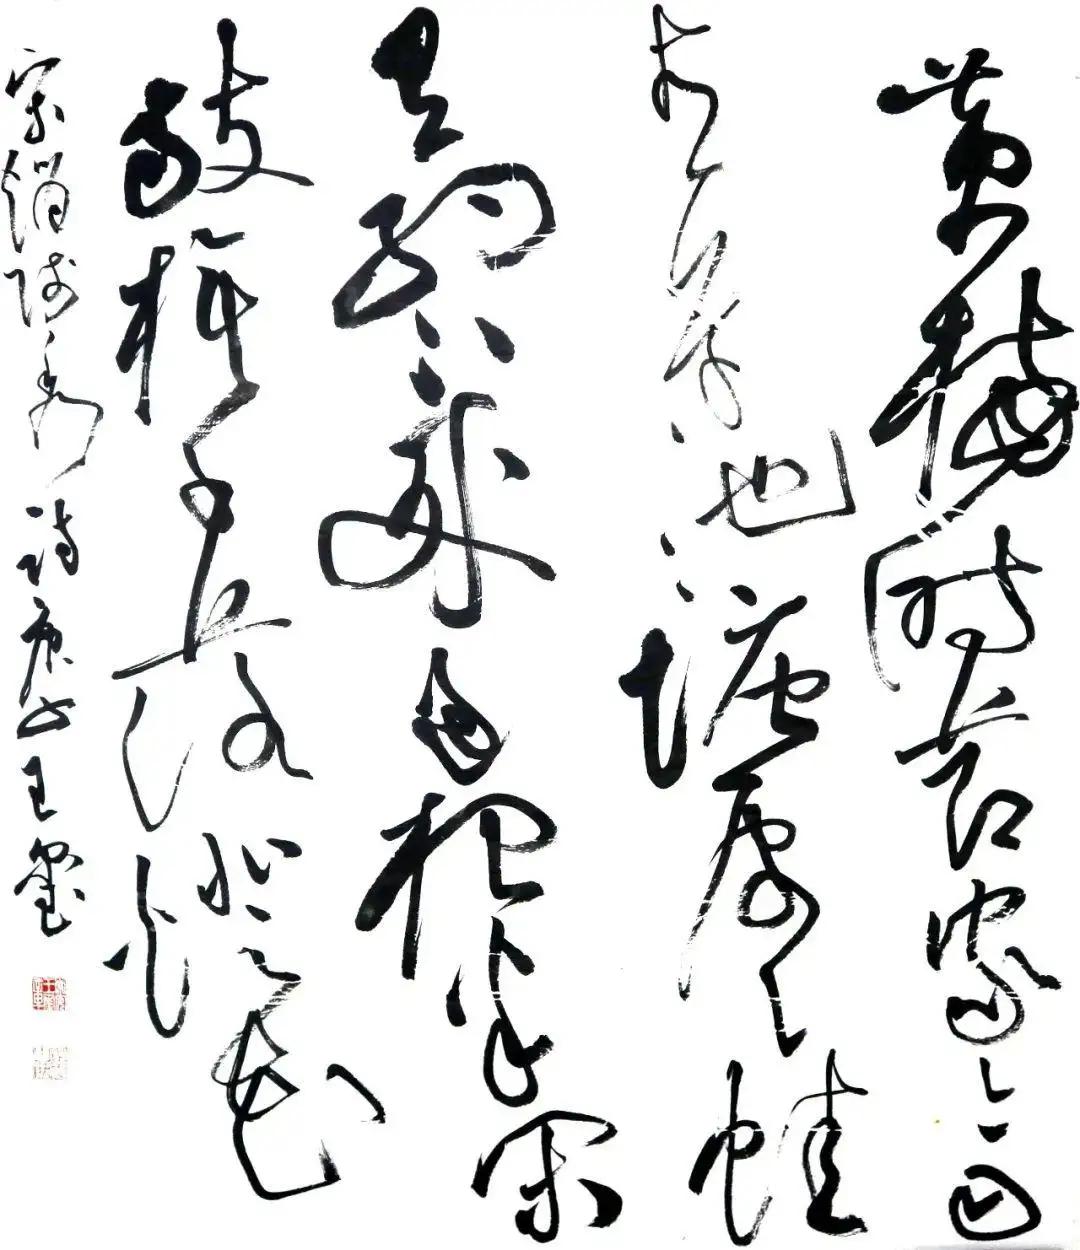 黄梅時節家家雨
青草池塘處處蛙
有約不來過夜半閑
敲棋子落燈花
宋趙師秀詩庚子王